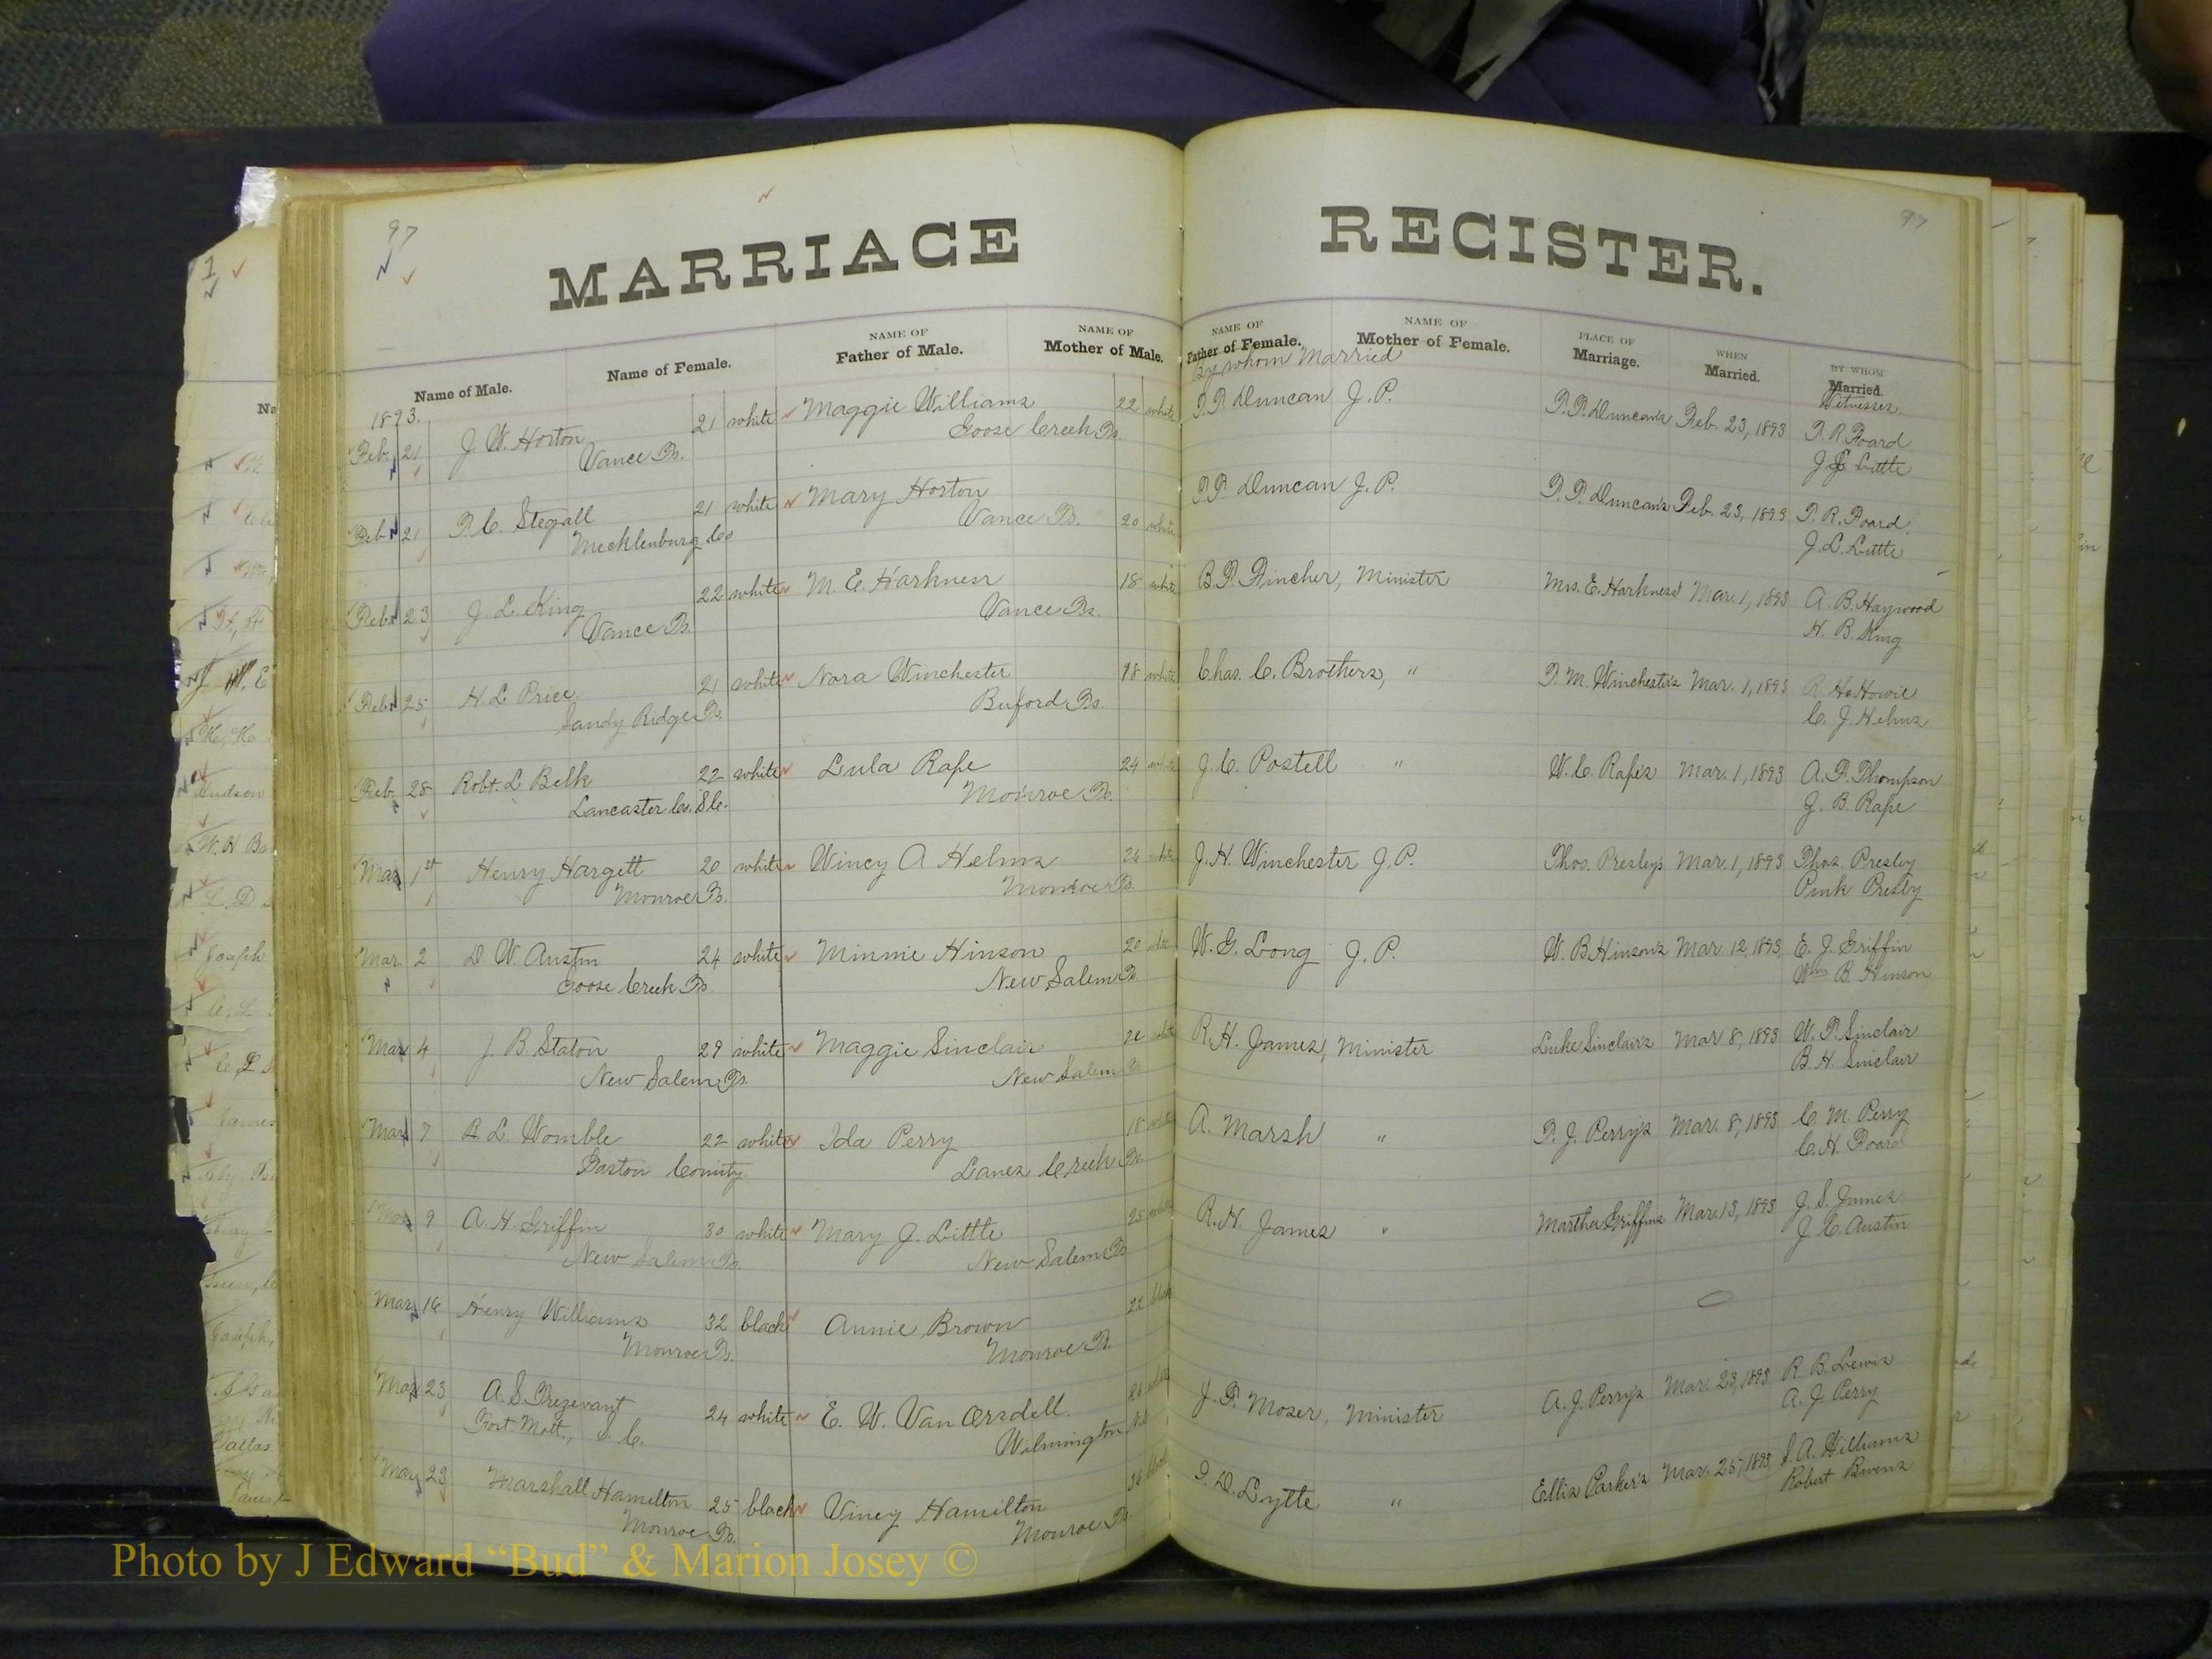 97
97
MARRIAGE REGISTER.
Name of Male.
Name of Female.
NAME OF
Father of Male.
NAME OF
Mother of Male.
NAME OF
Father of Female.
NAME OF
Mother of Female.
PLACE OF
Marriage.
WHEN
Married.
BY WHOM
Married.
By whom Married
Witnesses
1893.
Feb. 21 J. W. Horton 21 white Maggie Williams 22 white T. P. Duncan J. P. T. P. Duncan's Feb. 23, 1893 T. R. Foard
Vance Ts. Goose Creek Ts. J. L. Little
Feb. 21 T. C. Stegall 21 white Mary Horton 20 white T. P. Duncan J. P. T. P. Duncan's Feb. 23, 1893 T. R. Foard
Mecklenburg Co Vance Ts. J. L. Little
Feb. 23 J. L. King 22 white M. E. Harkness 18 white B. F. Fincher, Minister Mrs. E. Harkness Mar. 1, 1893 A. B. Haywood
Vance Ts. Vance Ts. H. B. King
Feb. 25 H. L. Price 21 white Nora Winchester 18 white Chas. C. Brothers, " T. M. Winchester's Mar. 1, 1893 R. H. Howie
Sandy Ridge Ts. Buford Ts. C. J. Helms
Feb. 28 Robt. L Belk 22 white Lula Rape 24 white J. C. Postell " W. C. Rape's Mar. 1, 1893 A. P. Thompson
Lancaster Co. S.C. Monroe Ts. J. B. Rape
Mar 1st Henry Hargett 20 white Wincy A Helms 26 white J. H. Winchester J. P. Thos. Presley's Mar. 1, 1893 Thos. Presley
Monroe Ts. Monroe Ts. Pink Presly
Mar. 2 D. W. Austin 24 white Minnie Hinson 20 white W. G. Long J. P. W. B Hinson's Mar. 12, 1893, E. J. Griffin
Goose Creek Ts New Salem Ts Wm B. Hinson
Mar 4 J. B. Staton 29 white Maggie Sinclair white R. H. James, Minister Luke Sinclair's Mar 8, 1893 W. P. Sinclair
New Salem Ts. New Salem Ts B. H. Sinclair
Mar 7 B L. Womble 22 white Ida Perry 18 white A. Marsh " T. J. Perry's Mar. 8, 1893 C. M. Perry
Gaston County Lanes Creek Ts. C. H. Foard
Mar 9 A. H. Griffin 30 white Mary J. Little 25 white R. H. James " Martha Griffins Mar. 13, 1893 J. S. James
New Salem Ts. New Salem Ts J. C. Austin
Mar 16 Henry Williams 32 black Annie Brown 22 black
Monroe Ts. Monroe Ts.
Mar 23 A. S. Trezevant 24 white E. W. Van Orsdell white J. F. Moser, Minister A. J. Perry's Mar. 23, 1893 R. B. Lewis
Fort. Mott., S. C. Wilmington A. J. Perry
Mar 23 Marshall Hamilton 25 black Viney Hamilton black I. D. Lytte " Ellis Parker's Mar. 25, 1893 S. A. Williams
Monroe Ts. Monroe Ts Robert Bivens
Photo by J Edward “Bud” & Marion Josey ©